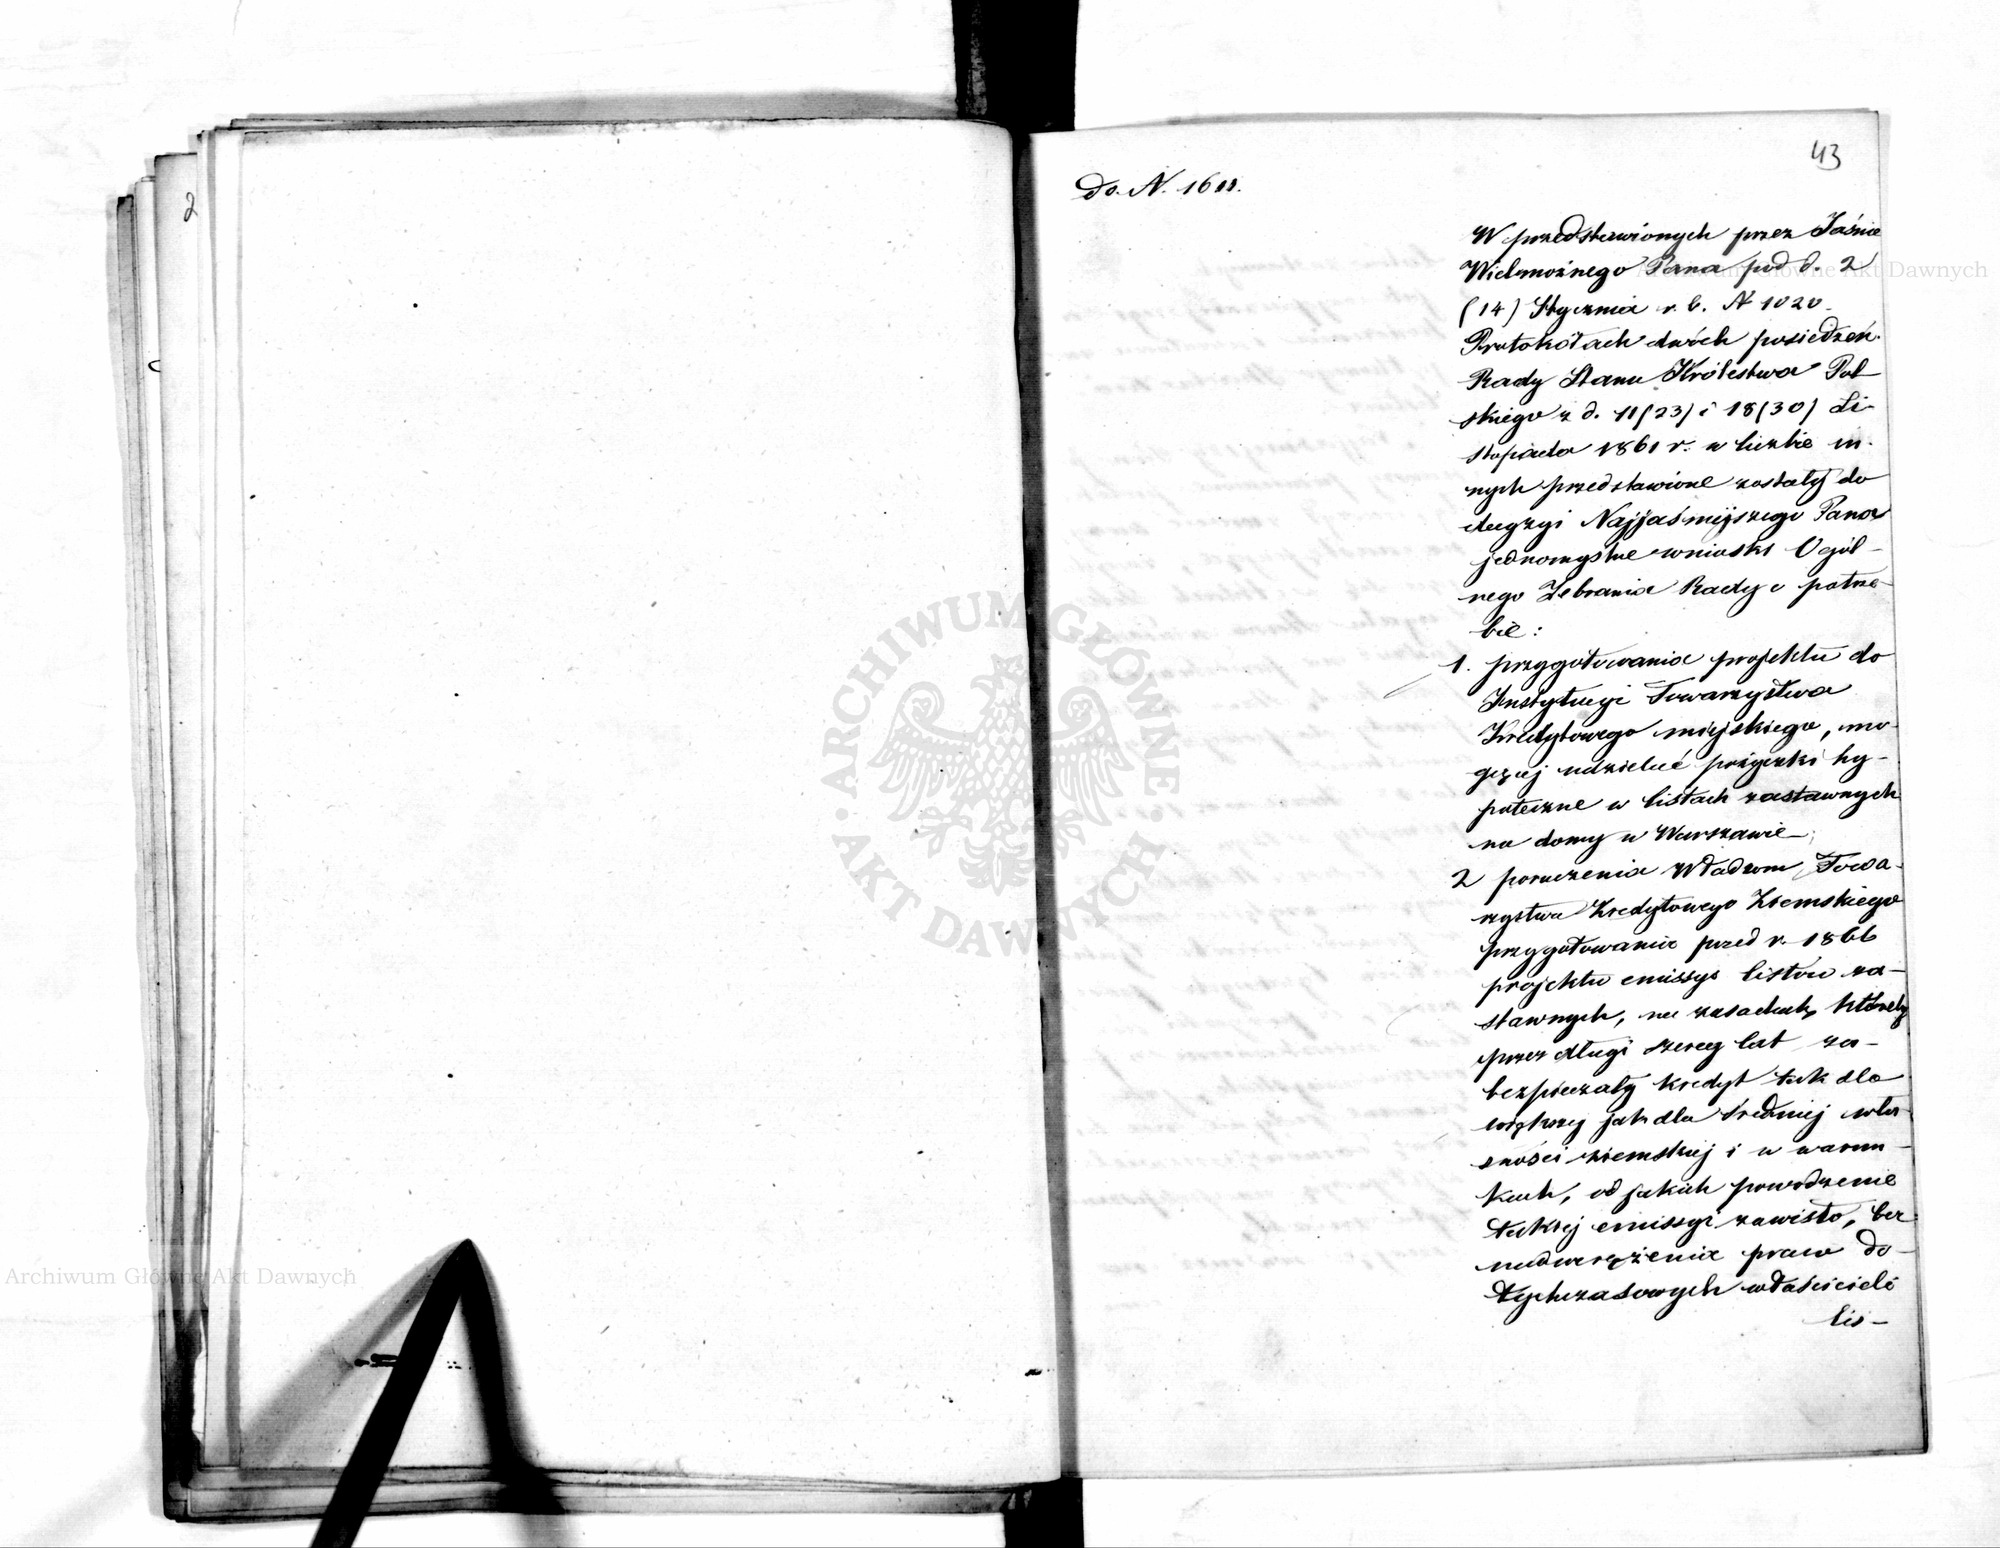 2
43
do. N. 1611.
W przedstawionych przez Jaśnie
Wielmożnego Pana pod d. 2
(14) Stycznia r. b. N 1020
Protokółach dwóch posiedzeń
Rady Stanu Królestwa Pol-
skiego z d. 11(23) i 18(30) Li-
stopada 1861 r. w liczbie in-
nych przedstawione zostały do
decyzyi Najjaśniejszego Pana
jednomyślne wnioski Ogól-
nego Zebrania Rady o potrze-
bie:
1. przygotowania projektu do
Instytucyi Towarzystwa
Kredytowego miejskiego, mo-
gącej udzielać pożyczki hy-
poteczne w listach zastawnych
na domy w Warszawie;
2 poruczenia Władzom Towa-
rzystwa Kredytowego Ziemskiego
przygotowania przed r. 1866
projektu emissyi listów za-
stawnych, na zasadach, któreby
przez długi szereg lat za-
bezpieczały kredyt tak dla
większej jak dla średniej wła-
sności ziemskiej i w warun-
kach, od jakich powodzenie
takiej emissyi zawisło, bez
nadwerężenia praw do-
tychczasowych właścicieli
lis-
ARCHIWUM GŁÓWNE
AKT DAWNYCH
Archiwum Główne Akt Dawnych
Archiwum Główne Akt Dawnych